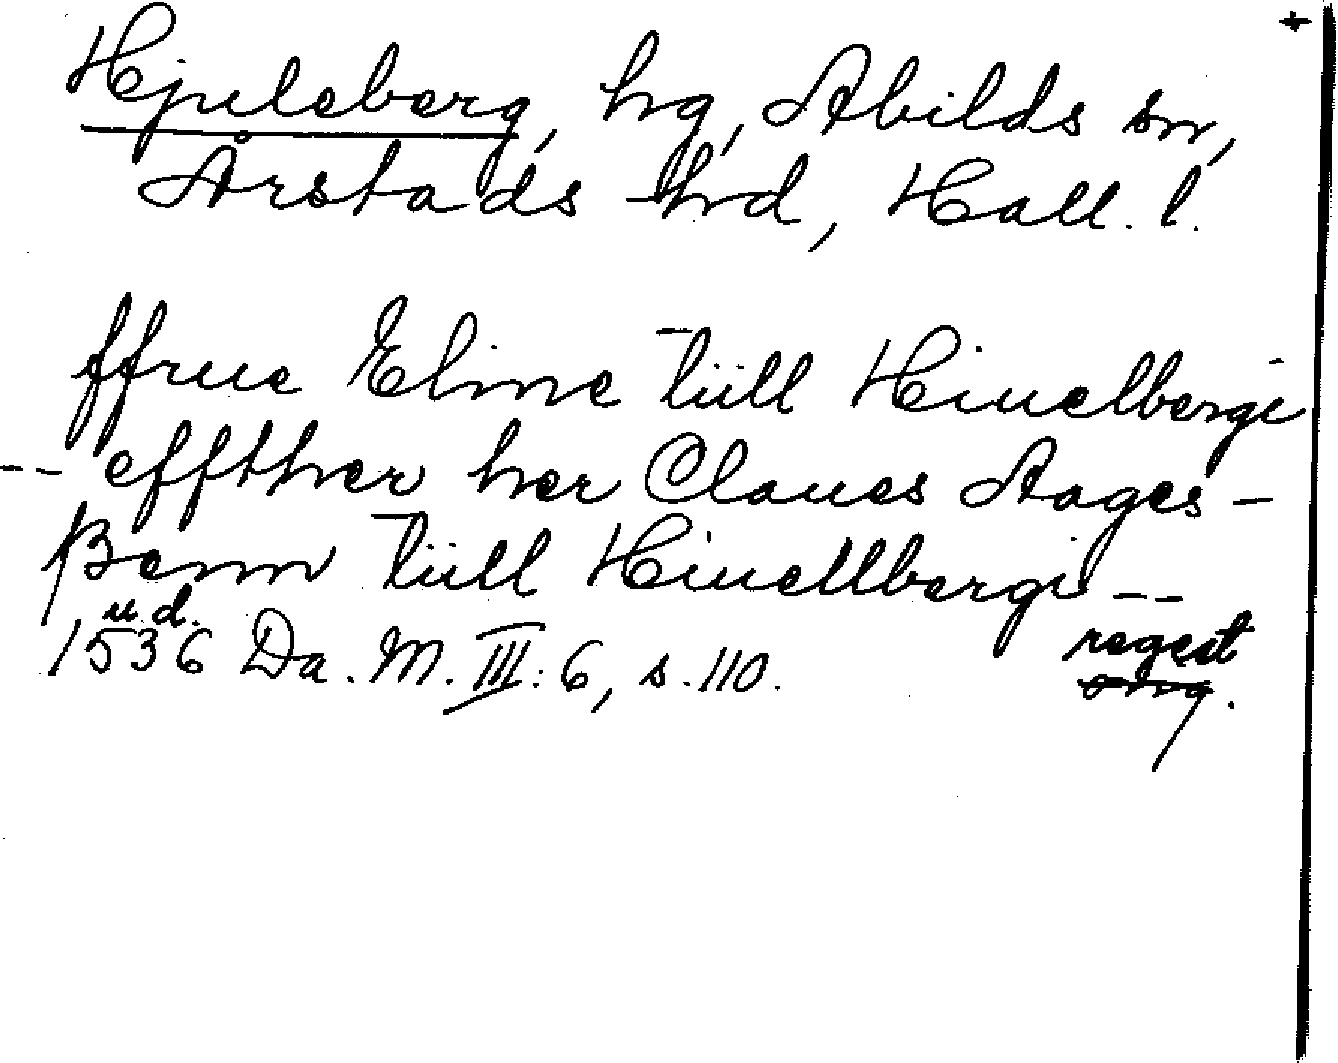 +
Hjuleberg, hg, Abilds sn,
Årstads hd, Hall. l.
ffrue Eline tiill Hiuelbergi
-- effther her Claues Aages-
ßenn tiill Hiuellbergi --
u.d.
1536 Da. M. III: 6, s. 110.
regest